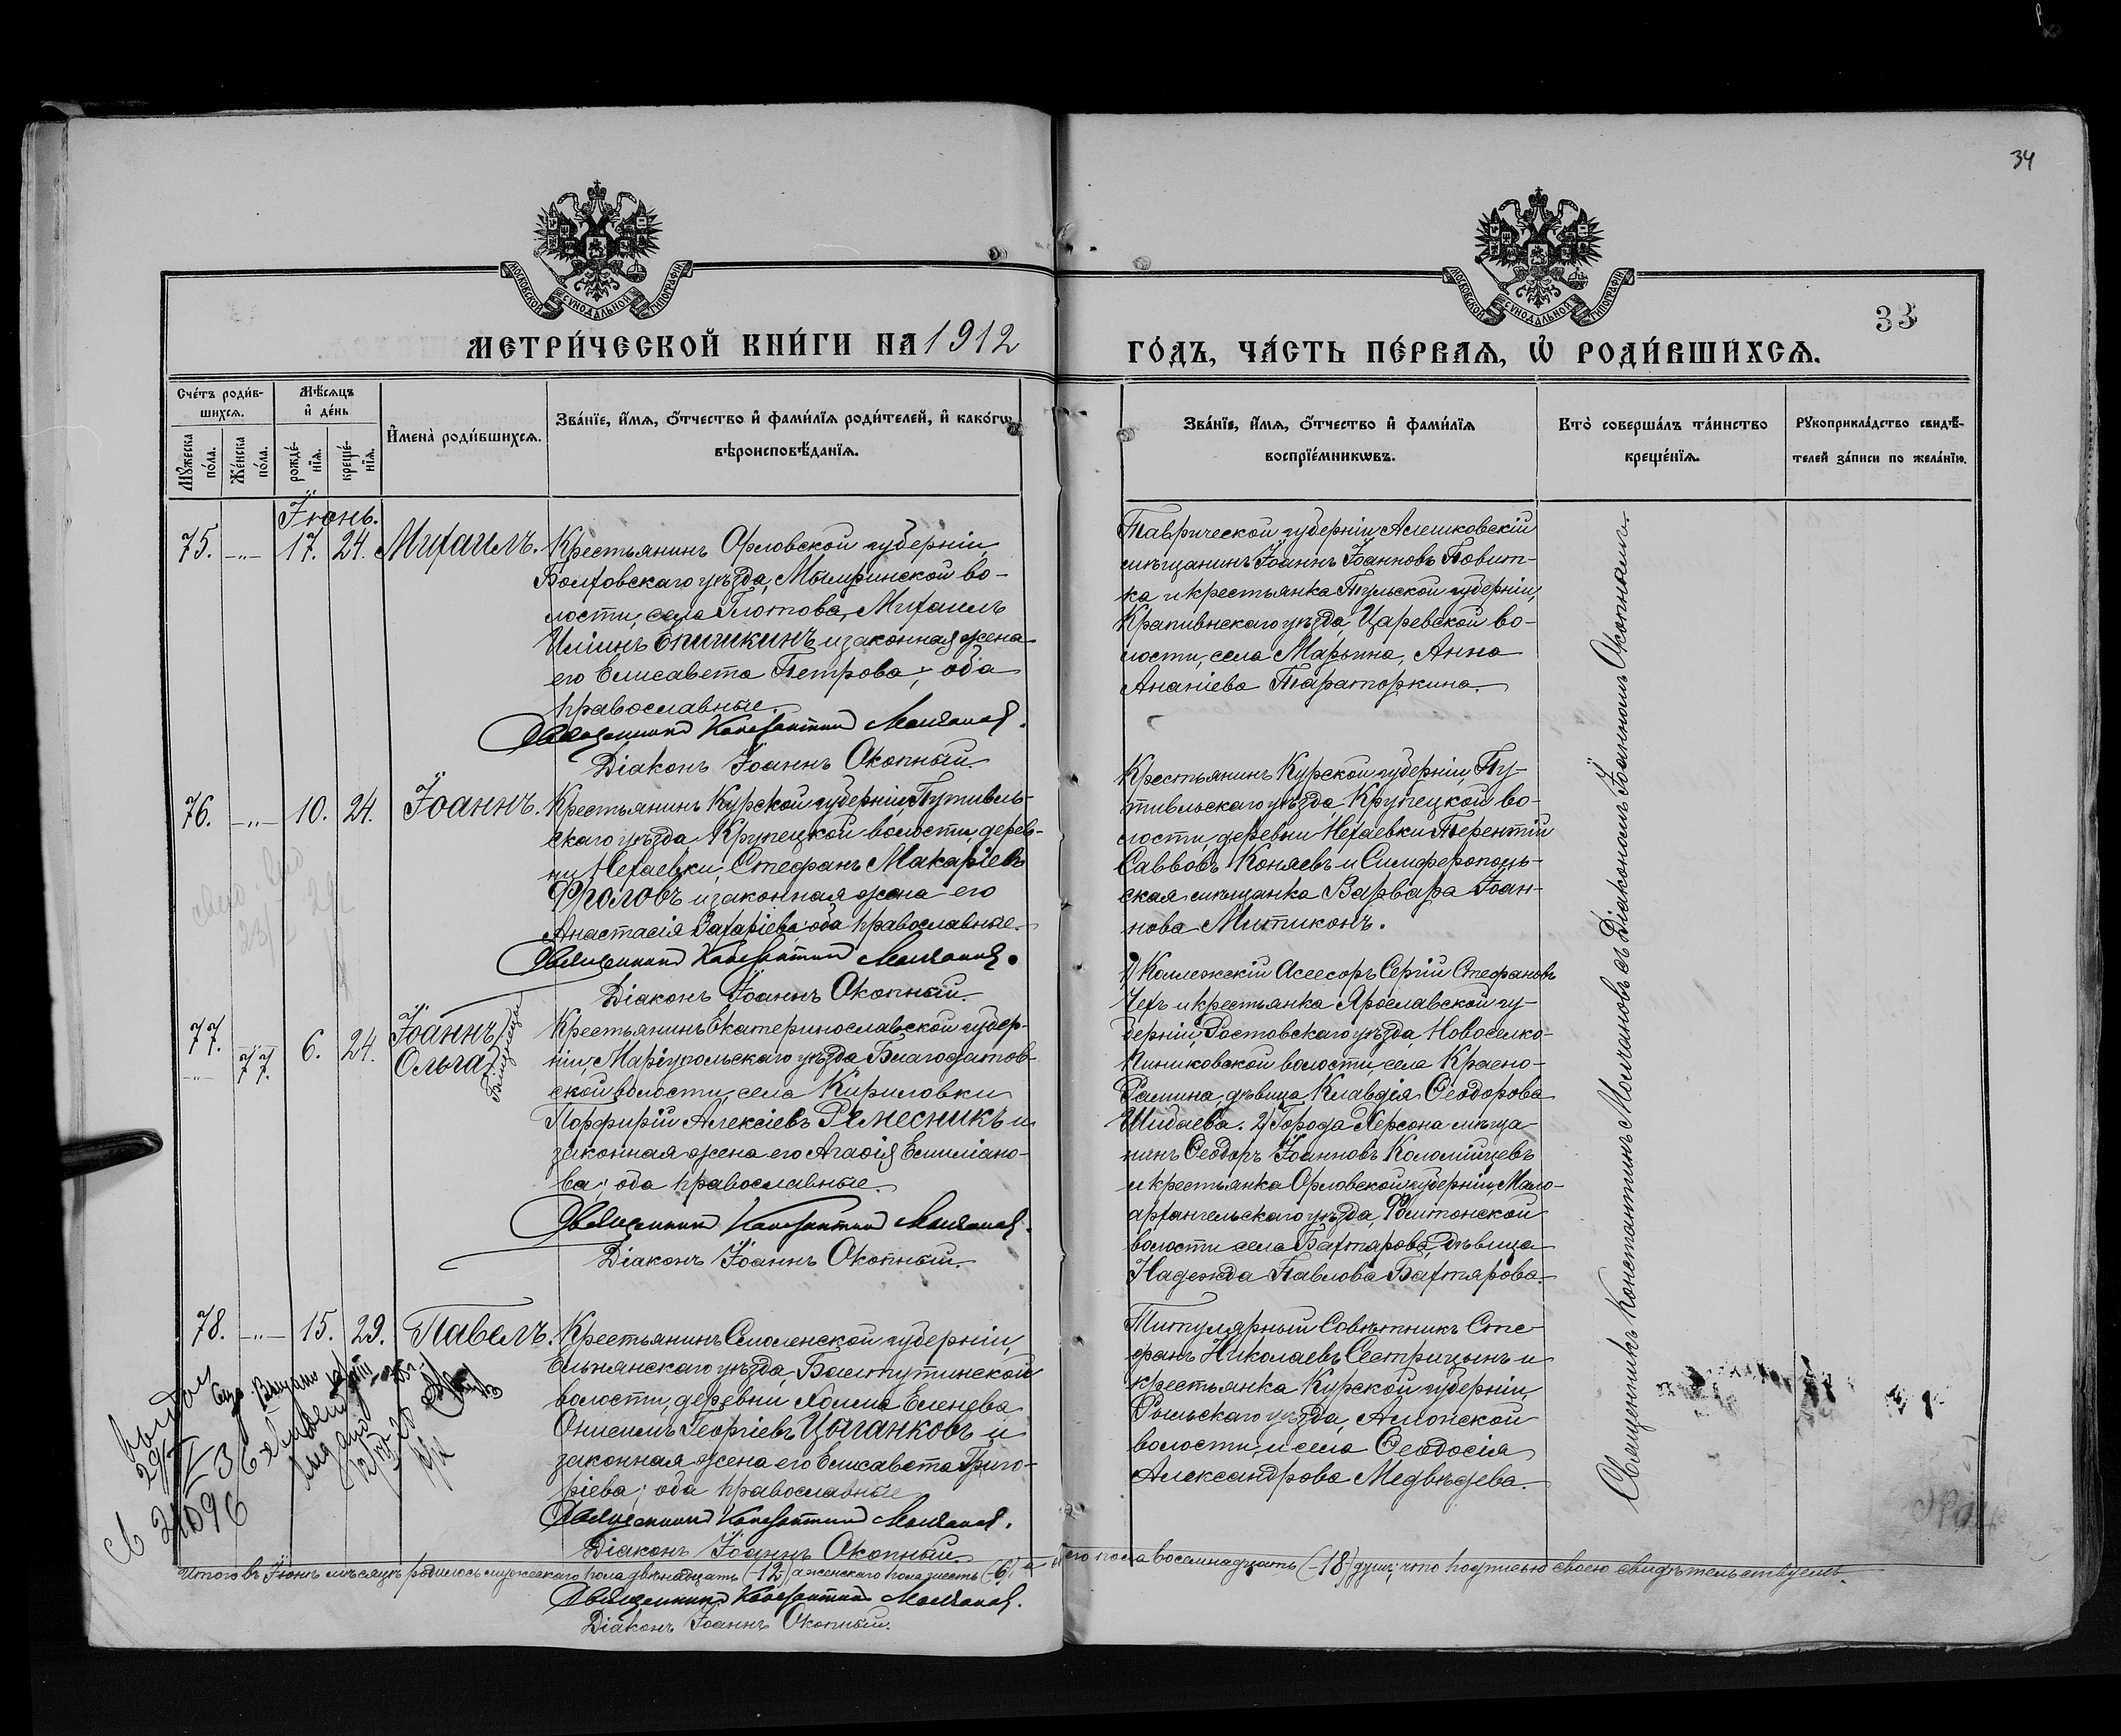 34
33
МОСКОВСКОЙ СѴНОДАЛЬНОЙ ТИПОГРАФІИ
МОСКОВСКОЙ СѴНОДАЛЬНОЙ ТИПОГРАФІИ
МЕТРИ́ЧЕСКОЙ КНИ́ГИ НА 1912
ГО́ДЪ, ЧА́СТЬ ПЕ́РВАѦ, Ѡ҆ РОДИ́ВШИХСѦ.
Сче́тъ роди́в-
шихсѧ.
Мꙋ́жеска по́ла.
Же́нска по́ла.
Мѣ́сѧцъ и҆ де́нь
рожде́-
нїѧ.
креще́-
нїѧ.
И҆мена̀ роди́вшихсѧ.
Зва́нїе, и҆́мѧ, ѻ҆́тчество и҆ фами́лїѧ роди́телей, и҆ како́гѡ
вѣроисповѣ́данїѧ.
Зва́нїе, и҆́мѧ, ѻ҆́тчество и҆ фами́лїѧ
воспрїе́мникѡвъ.
Кто̀ соверша́лъ та́инство
креще́нїѧ.
Рꙋкоприкла́дство свидѣ́-
телей за́писи по жела́нїю.
Іюнь.
75. —"— 17. 24. Михаилъ.
Крестьянинъ Орловской губерніи,
Болховскаго уѣзда, Мымринской во-
лости, села Глотова, Михаилъ
Ильинъ Опишкинъ и законная жена
его Елисавета Петрова; оба
православные.
Священникъ Константинъ Молчановъ.
Діаконъ Іоаннъ Окопный.
Таврической губерніи, Алешковскій
мѣщанинъ Іоаннъ Іоанновъ Повит-
ка и крестьянка Тульской губерніи,
Крапивнскаго уѣзда, Царевской во-
лости, села Марьина, Анна
Ананіева Тараторкина.
76. —"— 10. 24. Іоаннъ.
Крестьянинъ Курской губерніи, Путивль-
скаго уѣзда, Крупецкой волости, дерев-
ни Нехаевки, Стефанъ Макаріевъ
Фроловъ и законная жена его
Анастасія Захаріева; оба православные.
Священникъ Константинъ Молчановъ.
Діаконъ Іоаннъ Окопный.
Крестьянинъ Курской губерніи, Пу-
тивльскаго уѣзда, Крупецкой во-
лости, деревни Нехаевки Терентій
Саввовъ Коняевъ и Симферополь-
ская мѣщанка Варвара Іоан-
нова Митиконъ.
77. 77. 6. 24. Іоаннъ
Ольга
Близнецы
Крестьянинъ Екатеринославской губер-
ніи, Маріупольскаго уѣзда Благодатов-
ской волости, села Кириловки
Порфирій Алексіевъ Ремесникъ и
законная жена его Агаѳія Емиліано-
ва; оба православные.
Священникъ Константинъ Молчановъ.
Діаконъ Іоаннъ Окопный.
1) Коллежскій Асессоръ Сергій Стефановъ
Чехъ и крестьянка Ярославской гу-
берніи, Ростовскаго уѣзда, Новоселко-
села Красно-
Рамина, дѣвица Клавдія Ѳеодорова
Шибаева. 2) Города Херсона мѣща-
нинъ Ѳеодоръ Іоанновъ Коломійцевъ
и крестьянка Орловской губерніи, Мало-
архангельскаго уѣзда,
волости села Бахтярова, дѣвица
Надежда Павлова Бахтярова.
78. —"— 15. 29. Павелъ.
Крестьянинъ Смоленской губерніи,
Ельнянскаго уѣзда,
волости, деревни Холма Еленева
Онисимъ Георгіевъ Цыганковъ и
законная жена его Елисавета Григо-
ріева; оба православные
Священникъ Константинъ Молчановъ.
Діаконъ Іоаннъ Окопный.
Титулярный Совѣтникъ Сте-
фанъ Николаевъ Сестрицынъ и
крестьянка Курской губерніи
Рыльскаго уѣзда, Амонской
волости, и села Ѳеодосія
Александрова Медвѣдева.
Священникъ Константинъ Молчановъ съ Діакономъ Іоанномъ Окопнымъ
Итого въ Іюнѣ мѣсяцѣ родилось мужескаго пола двѣнадцать (-12-) а женскаго пола шесть (-6-) а
его пола восемнадцать (-18-) душъ; что подписью своею свидѣтельствуемъ.
Священникъ Константинъ Молчановъ.
Діаконъ Іоаннъ Окопный.